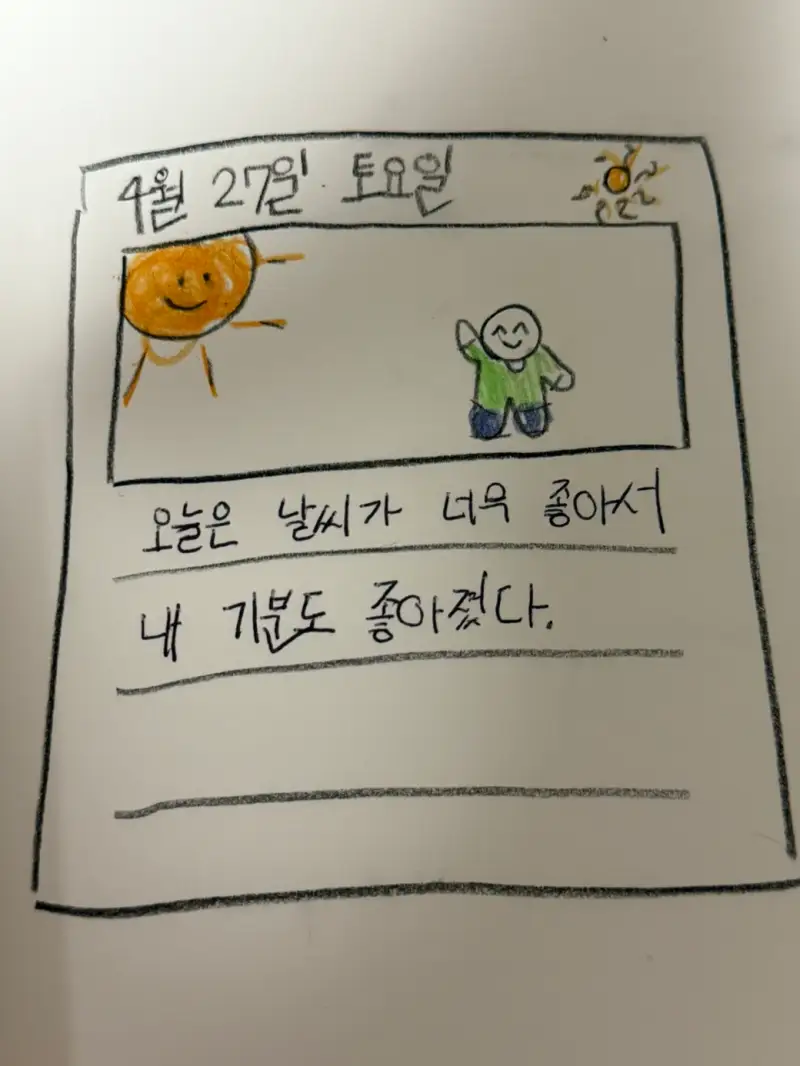 4월 27일 토요일
오늘은 날씨가 너무 좋아서
내 기분도 좋아졌다.